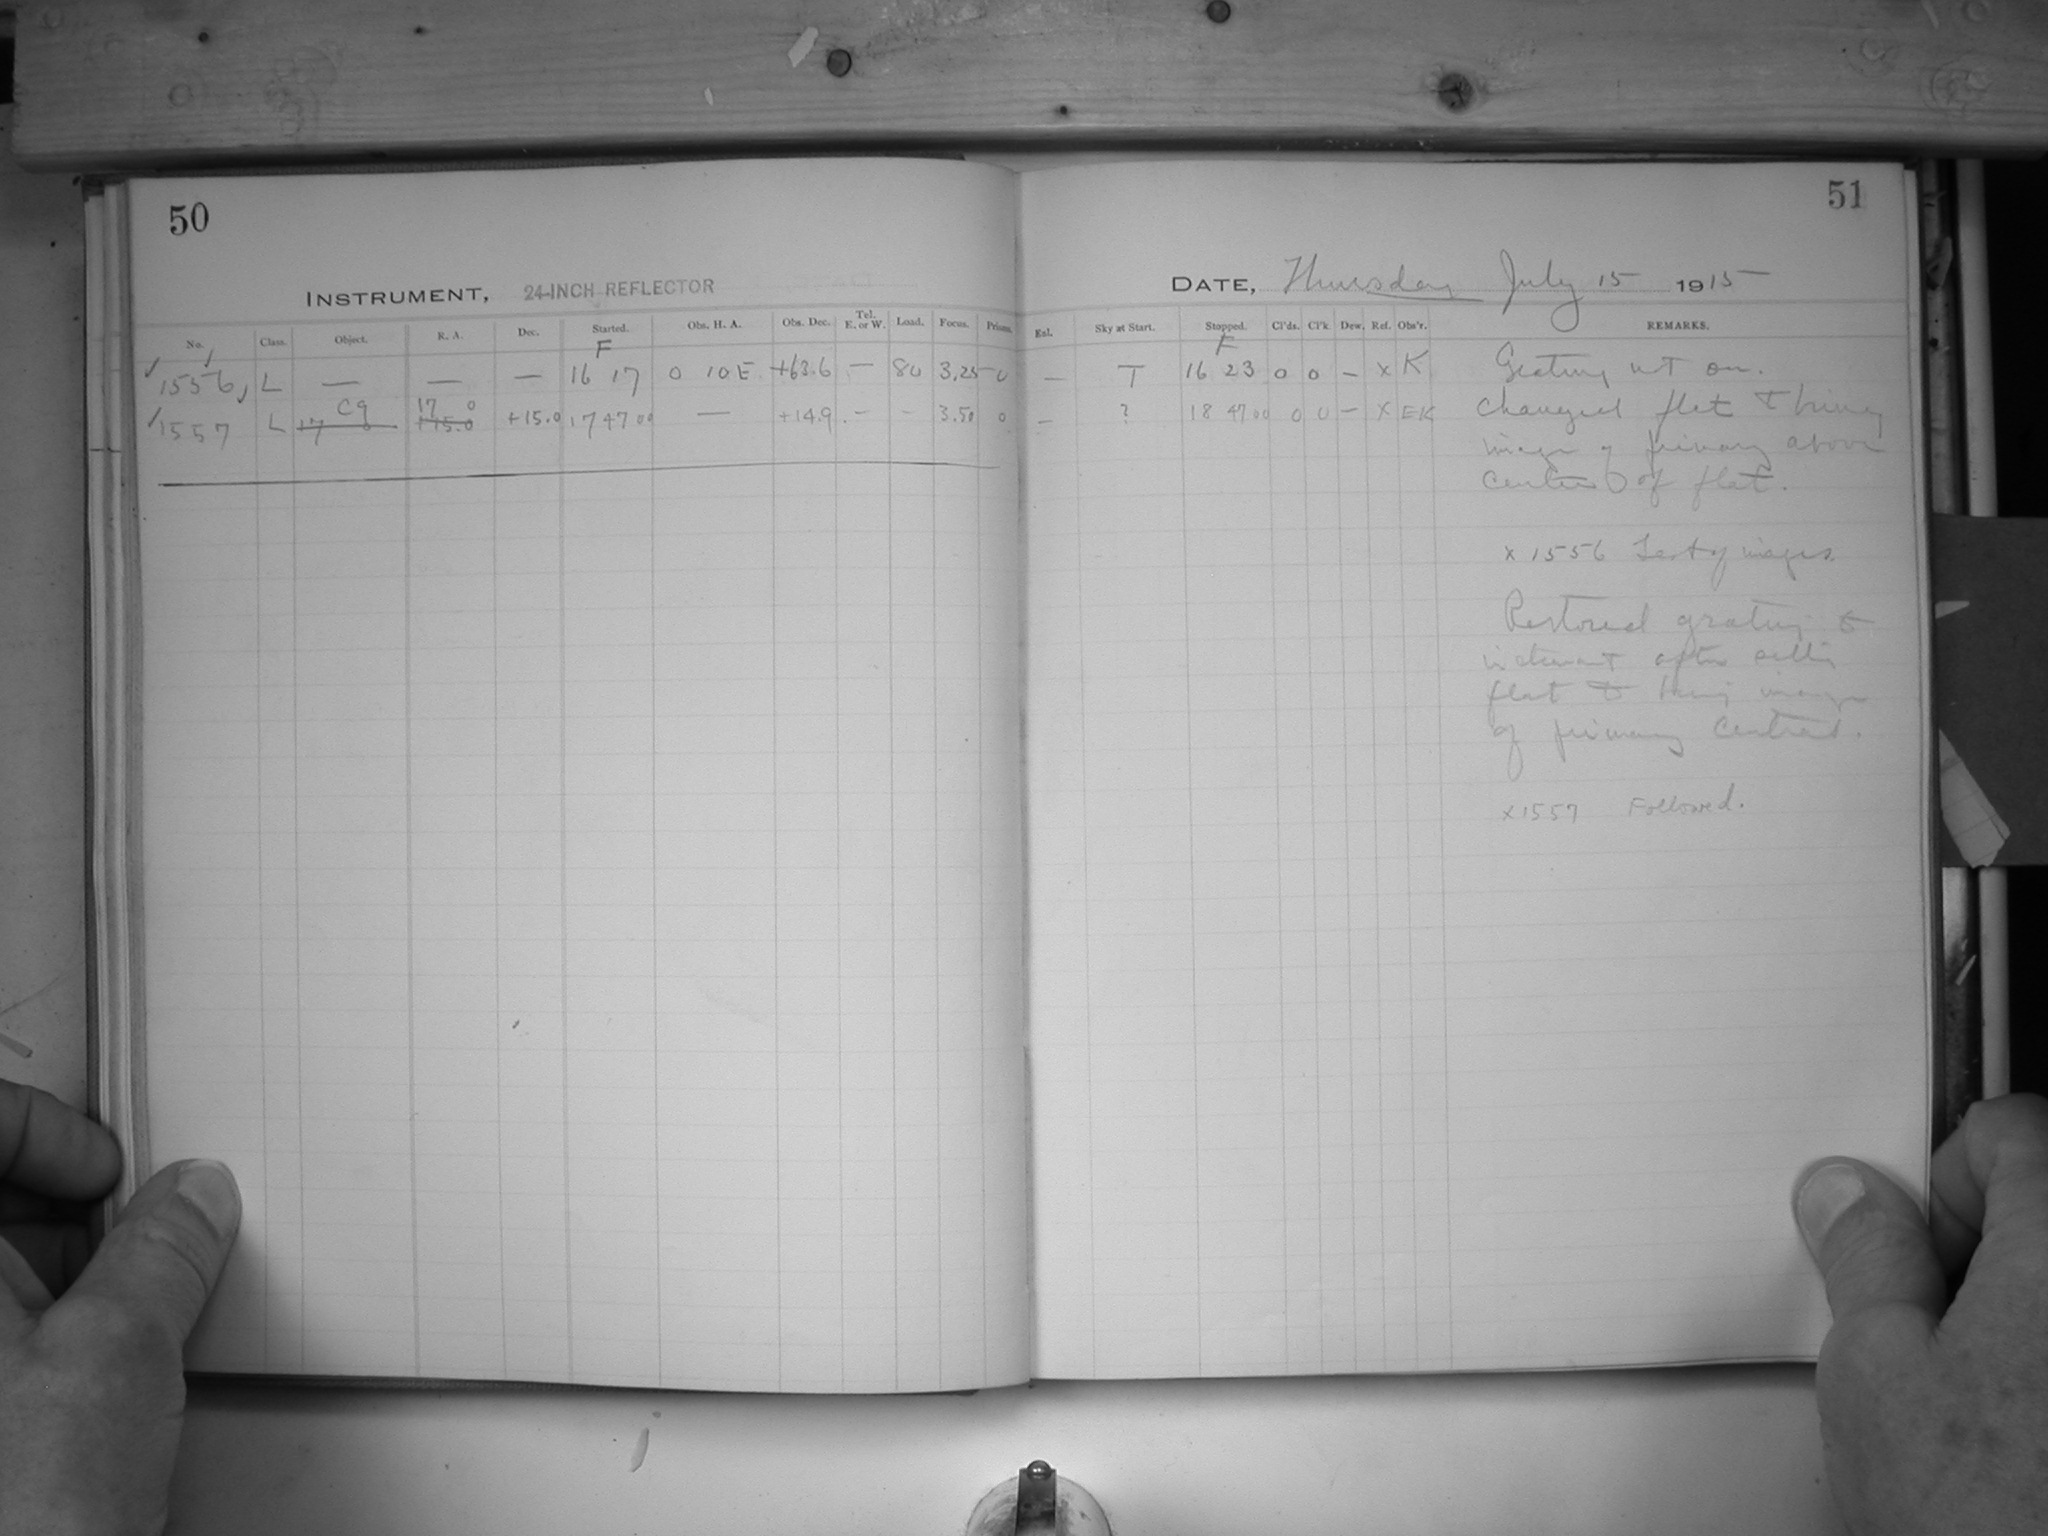 50
INSTRUMENT, 24-INCH REFLECTOR
No. Class. Object. R. A. Dec. Started. Obs. H. A. Obs. Dec. Tel. E. or W. Load. Focus. Prisms.
F
1556 L — — — 16 17 0 10 E +63.6 — 80 3.25 0
1557 L 17 0 C9 +15.0 17 0 +15.0 17 47 00 — +14.9 - - 3.50 0
51
DATE, Thursday July 15 1915
Exl. Sky at Start. Stopped. Cl'ds. Cl'k. Dew. Ref. Obs'r. REMARKS.
F
— T 16 23 0 0 — x K Grating not on.
— ? 18 47 00 0 0 — x EK Changed flat to bring
image of primary above
center of flat.
x 1556 Test of images.
Restored grating to
instrument after setting
flat to bring image
of primary central.
x 1557 Followed.